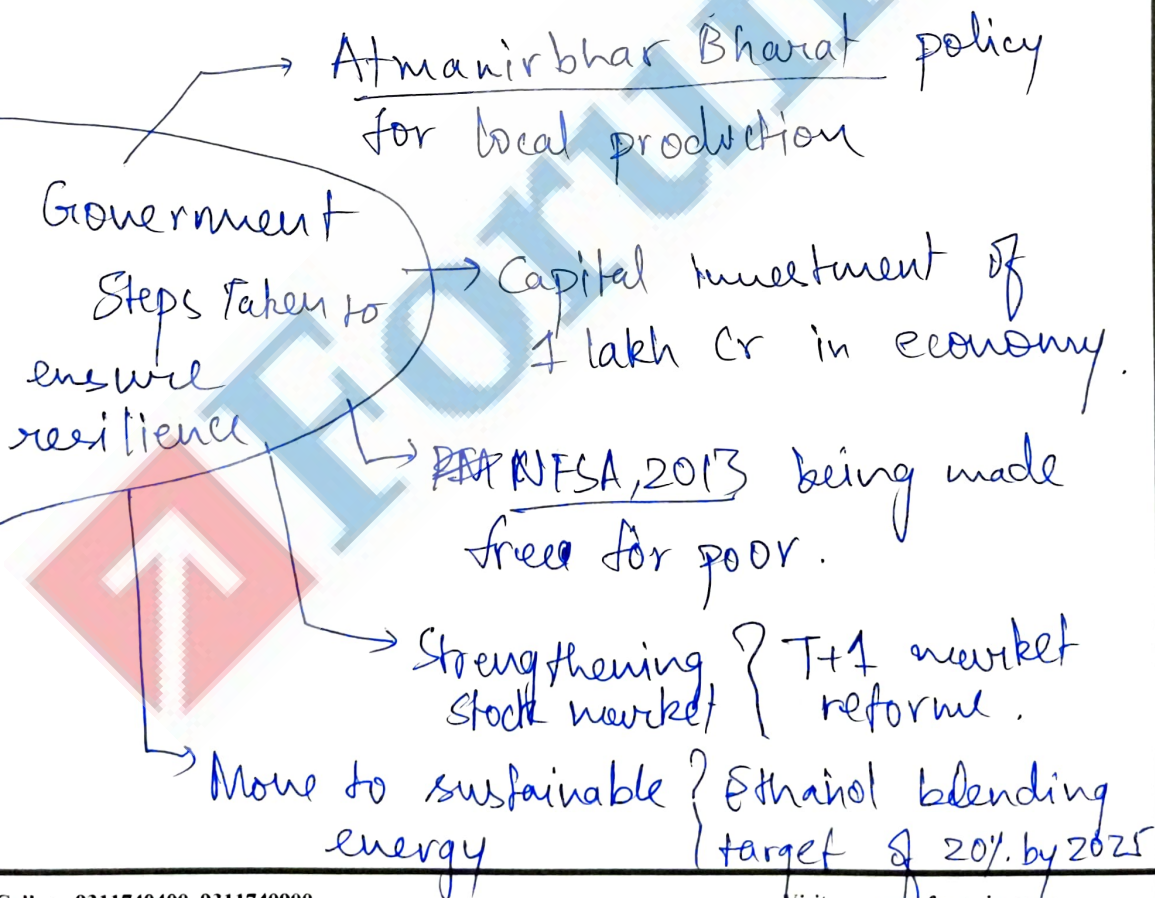 Atmanirbhar Bharat policy
for local production
Government
Steps Taken to
ensure
resilience
Capital investment of
1 lakh Cr in economy.
NFSA, 2013 being made
free for poor.
Strengthening
stock market
T+1 market
reforms.
Move to sustainable
energy
Ethanol blending
target of 20%. by 2025
Forum